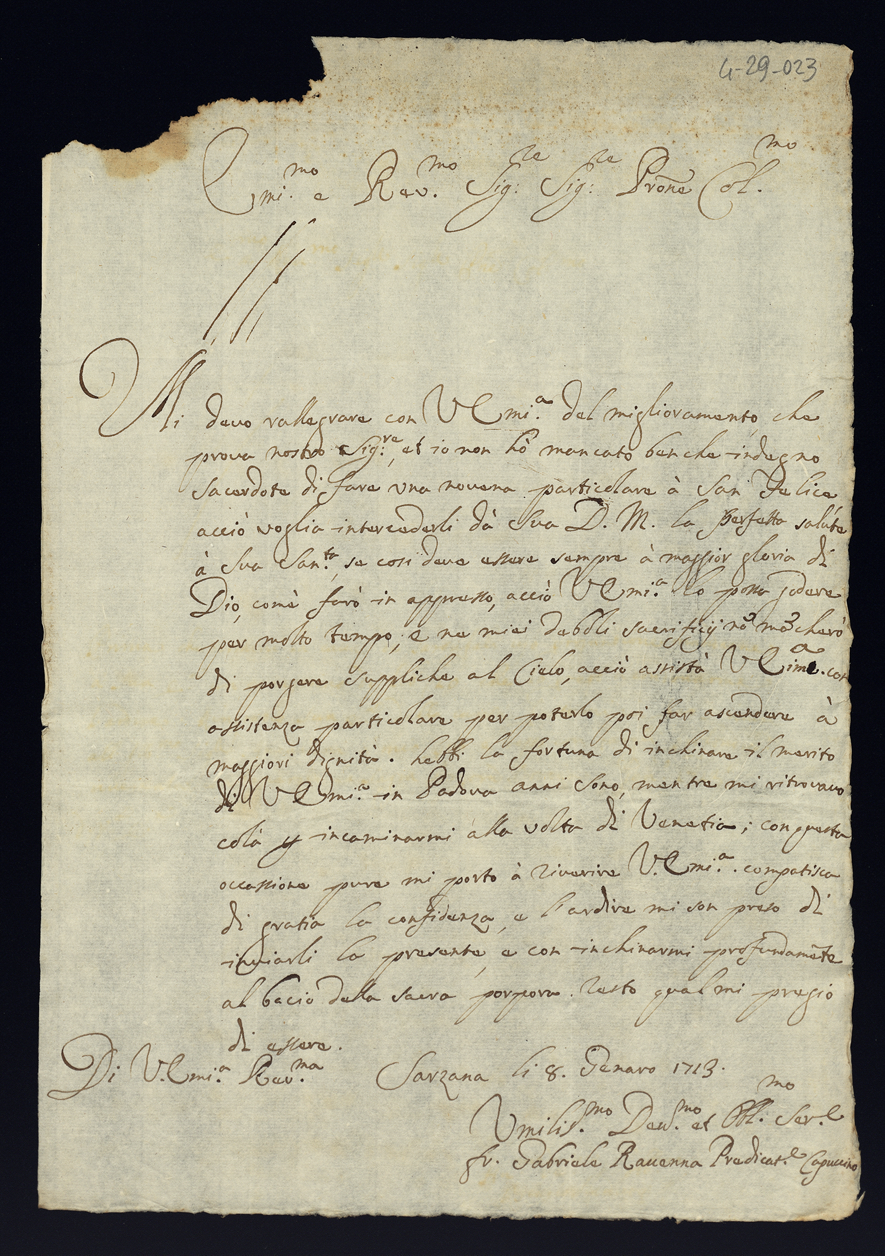 4-29-023
Emi.mo e Rev.mo Sig:re Sig:re Prone Col.mo
Mi devo rallegrare con V Emi.a del miglioramento, che
prova nostro Sig.re, et io non hò mancato benche indegno
sacerdote di fare una novena particolare à San Felice
acciò voglia intercederli dà Sua D. M. la perfetta salute
à Sua San.tà, se così deve essere sempre à maggior gloria di
Dio, comè farò in appresso, acciò V Emi.a lo possa godere
per molto tempo, e ne miei debboli sacrificij nõ mãcherò
di porgere suppliche al Cielo, acciò assista V Eime.a con
assistenza particolare per poterlo poi far ascendere à
maggiori dignità. hebbi la fortuna di inchinare il merito
di V Emi.a in Padova anni sono, mentre mi ritrovavo
colà p incaminarmi alla volta di Venetia; con questa
occassione pure mi porto à riverire V. Emi.a. compatisca
di gratia la confidenza, e l'ardire mi son preso di
inviarli la presente, e con inchinarmi profundamẽte
al bacio della sacra porpora. resto qual mi pregio
di essere.
Di V. Emi.a Rev.ma Sarzana li 8. Genaro 1713.
Umilis.mo Dev.mo et Obl.mo Ser.e
fr. Gabriele Ravenna Predicat.e Capuccino